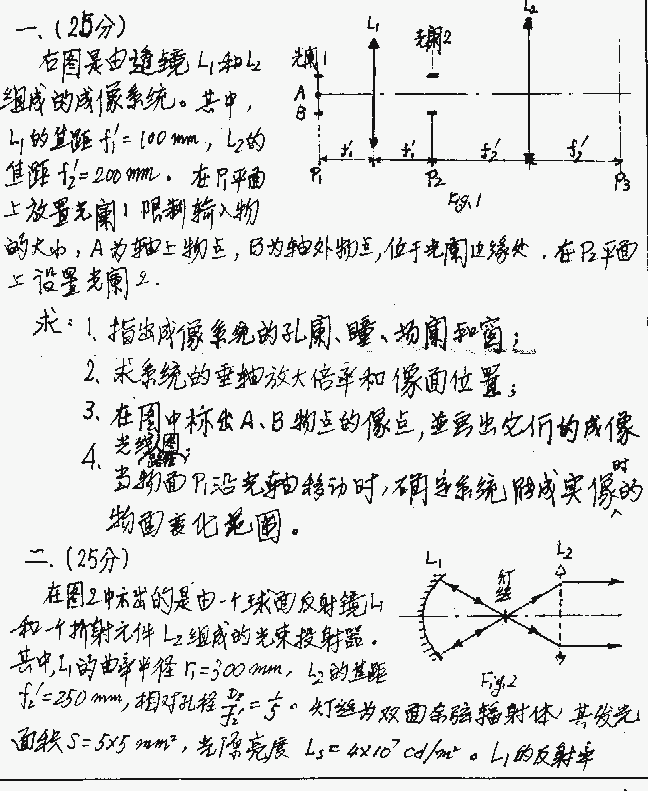 一、(25分)
右图是由透镜 L₁和L₂
组成的成像系统。其中,
L₁的焦距 f₁'=100mm, L₂的
焦距 f₂'=200mm。在P₁平面
上放置光阑1限制输入物
的大小, A为轴上物点, B为轴外物点, 位于光阑边缘处. 在P₂平面
上设置光阑2.
光阑1
L₁
光阑2
L₂
A
B
f₁' f₁' f₂' f₂'
P₁ P₂ P₃
Fig.1
求: 1. 指出成像系统的孔阑、瞳、场阑和窗;
2. 求系统的垂轴放大倍率和像面位置;
3. 在图中标出A、B物点的像点, 並画出它们的成像
光线
4. 当物面P₁沿光轴移动时, 确定系统能成实像时的
物面变化范围。
二、(25分)
在图2中示出的是由一个球面反射镜L₁
和一个折射元件L₂组成的光束投射器.
其中, L₁的曲率半径 r₁=300mm, L₂的焦距
f₂'=250mm, 相对孔径 D₂/f₂'=1/5。灯丝为双面余弦辐射体, 其发光
面积 S=5x5 mm², 光源亮度 Ls=4x10⁷ cd/m²。L₁的反射率
L₁
灯丝
L₂
Fig.2